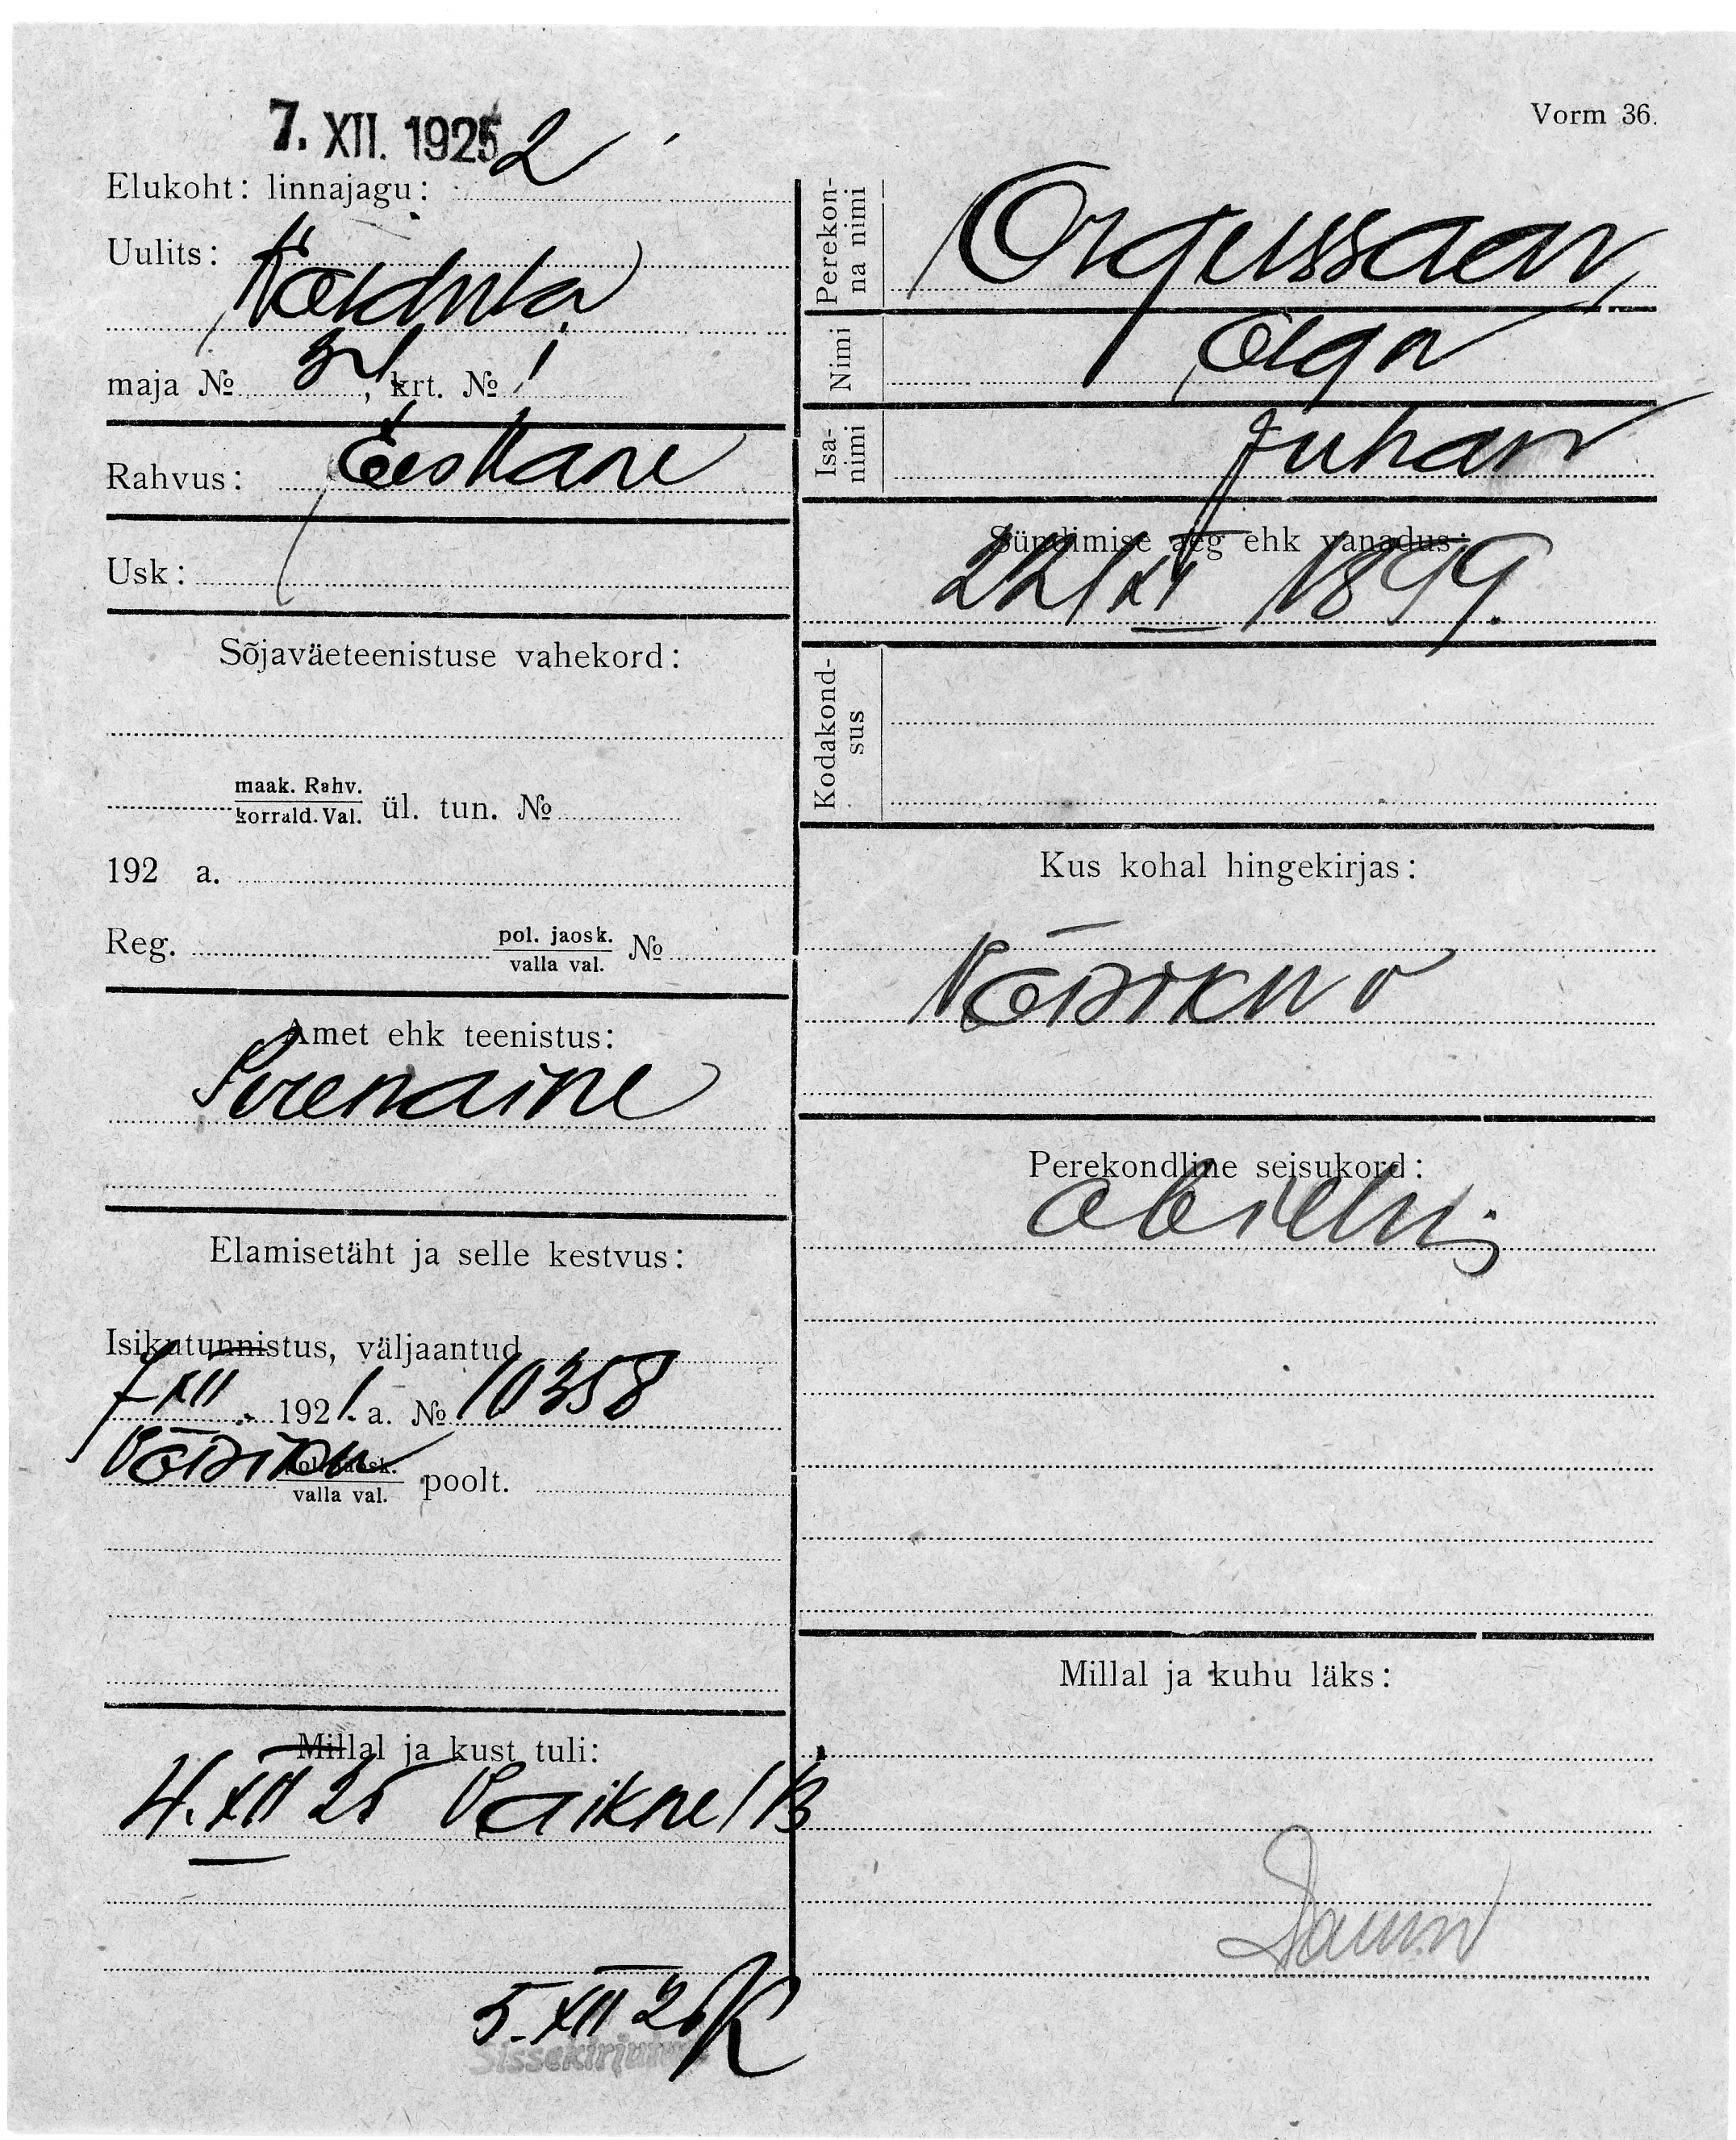 7. XII. 1925
Vorm 36.
Elukoht: linnajagu: 2
Uulits: Koidula
maja № 31, krt. № 1
Rahvus: Eestlane
Usk:
Sõjaväeteenistuse vahekord:
maak. Rahv.
korrald. Val. ül. tun. №
192 a.
Reg. pol. jaosk.
valla val. №
Amet ehk teenistus:
Perenaine
Elamisetäht ja selle kestvus:
Isikutunnistus, väljaantud
7 XII. 1921. a. № 10358
pol. jaosk.
valla val. poolt.
Millal ja kust tuli:
4. XII 25 Vaikne 1 B
5. XII 25 K
Sissekirjutatud
Perekon-
na nimi Orgussaar
Nimi Olga
Isa-
nimi Juhan
Sündimise aeg ehk vanadus:
22/XI 1899.
Kodakond-
sus
Kus kohal hingekirjas:
Perekondline seisukord:
abielus
Millal ja kuhu läks: